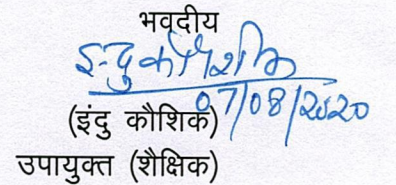 भवदीय
इन्दु कौशिक
07/08/2020
(इंदु कौशिक)
उपायुक्त (शैक्षिक)